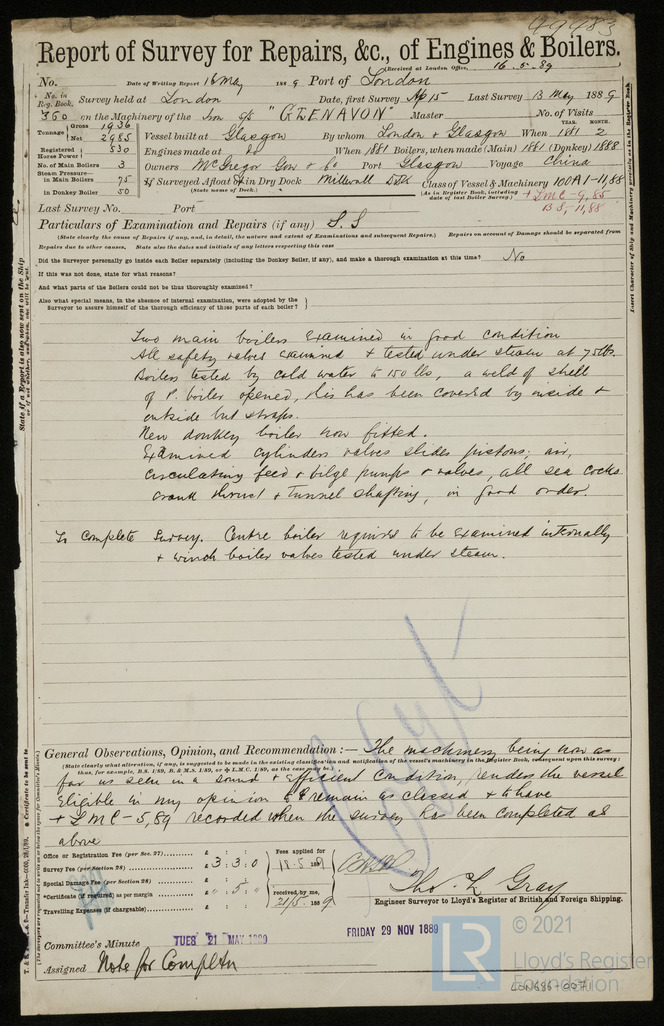 49483
Report of Survey for Repairs, &c., of Engines & Boilers.
(Received at London Office, 16.5.89
No. Date of Writing Report 16 May 1889 Port of London
No. in Reg. Book. Survey held at London Date, first Survey Ap 15 Last Survey 13 May 1889
360 on the Machinery of the Iron s/s "GLENAVON" Master No. of Visits
Tonnage Gross 1936 Net 2985 Vessel built at Glasgow By whom London & Glasgow When 1881 YEAR. MONTH. 2
Registered Horse Power 530 Engines made at do When 1881 Boilers, when made (Main) 1881 (Donkey) 1888
No. of Main Boilers 3 Owners McGregor Gow & Co Port Glasgow Voyage China
Steam Pressure— in Main Boilers 75 If Surveyed Afloat or in Dry Dock Millwall Dock Class of Vessel & Machinery 100A1-11,88
in Donkey Boiler 50 (State name of Dock.) (As in Register Book, including date of last Boiler Survey.) + LMC-9,85
BS, 11,88
Last Survey No. Port
Particulars of Examination and Repairs (if any) S.S
(State clearly the cause of Repairs if any, and, in detail, the nature and extent of Examinations and subsequent Repairs.) Repairs on account of Damage should be separated from
Repairs due to other causes. State also the dates and initials of any letters respecting this case
Did the Surveyor personally go inside each Boiler separately (including the Donkey Boiler, if any), and make a thorough examination at this time? No
If this was not done, state for what reasons?
And what parts of the Boilers could not be thus thoroughly examined?
Also what special means, in the absence of internal examination, were adopted by the
Surveyor to assure himself of the thorough efficiency of those parts of each boiler?
Two main boilers Examined in good condition
All safety valves examined & tested under steam at 75 lbs.
Boilers tested by cold water to 150 lbs, a weld of shell
of P. boiler opened, this has been covered by inside &
outside but straps.
New donkey boiler now fitted.
Examined cylinders valves slides pistons, air,
circulating feed & bilge pumps & valves, all sea cocks
crank thrust & tunnel shafting, in good order.
To complete Survey. Centre boiler required to be examined internally
& winch boiler valves tested under steam.
General Observations, Opinion, and Recommendation:— The machinery being now as
(State clearly what alteration, if any, is suggested to be made in the existing classification and notification of the vessel's machinery in the Register Book, consequent upon this survey:
thus, for example, B.S. 1/89, B. & M.S. 1/89, or + L.M.C. 1/89, as the case may be.)
far as seen in a sound & efficient condition, renders the vessel
Eligible in my opinion to remain as classed & to have
+ LMC-5,89 recorded when the survey has been completed as
above
Office or Registration Fee (per Sec. 27) £ : : Fees applied for
Survey Fee (per Section 28) £3:3:0 18.5.1889
Special Damage Fee (per Section 28) £ : :
*Certificate (if required) as per margin £ :5: received by me,
Travelling Expenses (if chargeable) £ : : 21/5 1889
Tho. L Gray
Engineer Surveyor to Lloyd's Register of British and Foreign Shipping.
Committee's Minute TUES 21 MAY 1889 FRIDAY 29 NOV 1889
Assigned Note for Completn
LR © 2021
Lloyd's Register
Foundation